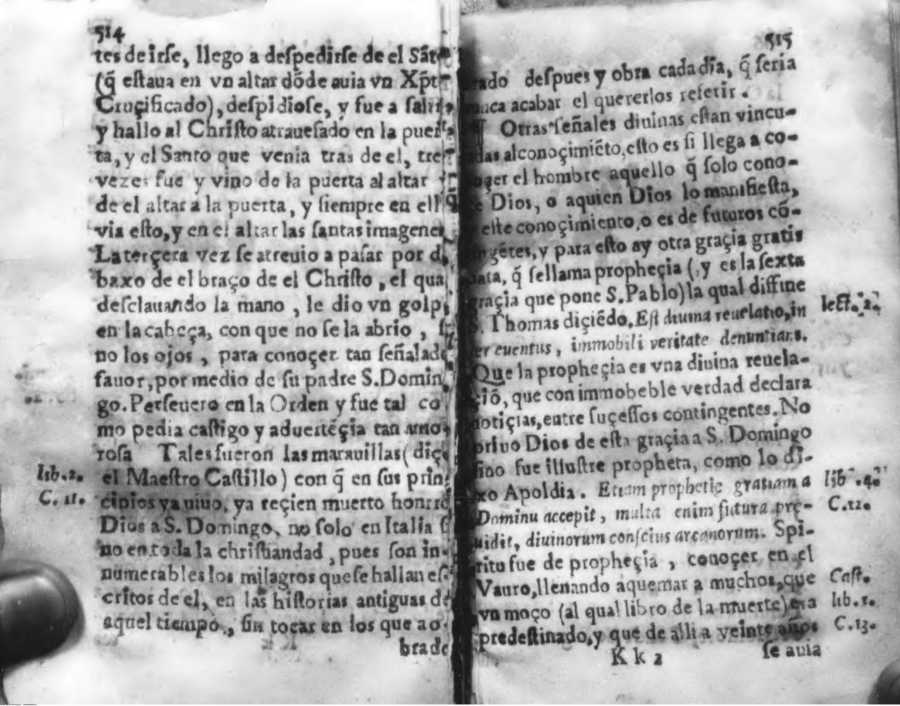 514
tes de irse, llego a despedirse de el Sãt
(q̃ estaua en vn altar dõde auia vn Xp̃t
Cruçificado), despidiose, y fue a salir
y hallo al Christo atrauesado en la puer
ta, y el Santo que venia tras de el, tres
vezes fue y vino de la puerta al altar y
de el altar a la puerta, y siempre en ell
via esto, y en el altar las santas imagenes
La terçera vez se atreuio a pasar por d
baxo de el braço de el Christo, el qua
desclauando la mano, le dio vn golp
en la cabeça, con que no se la abrio, s
no los ojos, para conoçer tan señalad
fauor, por medio de su padre S. Domin
go. Perseuero en la Orden y fue tal co
mo pedia castigo y aduertẽçia tan amo
rosa Tales fueron las marauillas (diçe
lib. 2. el Maestro Castillo) con q̃ en sus prin
C. 11. cipios ya viuo, ya reçien muerto honrro
Dios a S. Domingo, no solo en Italia s
no en toda la christiandad, pues son in-
numerables los milagros que se hallan es
critos de el, en las historias antiguas de
aquel tiempo, sin tocar en los que ao-
brade
515
rado despues y obra cada dia, q̃ seria
nunca acabar el quererlos referir.
Otras señales diuinas estan vincu-
adas al conoçimiẽto, esto es si llega a co-
oçer el hombre aquello q̃ solo cono-
e Dios, o a quien Dios lo manifiesta,
este conoçimiento, o es de futuros cõ-
ingẽtes, y para esto ay otra graçia gratis
data, q̃ se llama propheçia (, y es la sexta
graçia que pone S. Pablo) la qual diffine
S. Thomas diçiẽdo. Est diuina reuelatio, in lect. 2.
er euentus, immobili veritate denuntians.
Que la propheçia es vna diuina reuela-
çiõ, que con immobeble verdad declara
notiçias, entre suçessos contingentes. No
priuo Dios de esta graçia a S. Domingo
sino fue illustre propheta, como lo di-
xo Apoldia. Etiam prophetiç gratiam a lib. 4.
Dominu accepit, multa enim futura prę- C. 12.
uidit, diuinorum conscius arcanorum. Spi-
ritu fue de propheçia, conoçer en el
Vauro, llenando aquemar a muchos, que Cast.
vn moço (al qual libro de la muerte) era lib. 1.
predestinado, y que de alli a veinte años C. 13.
K k 2 se auia